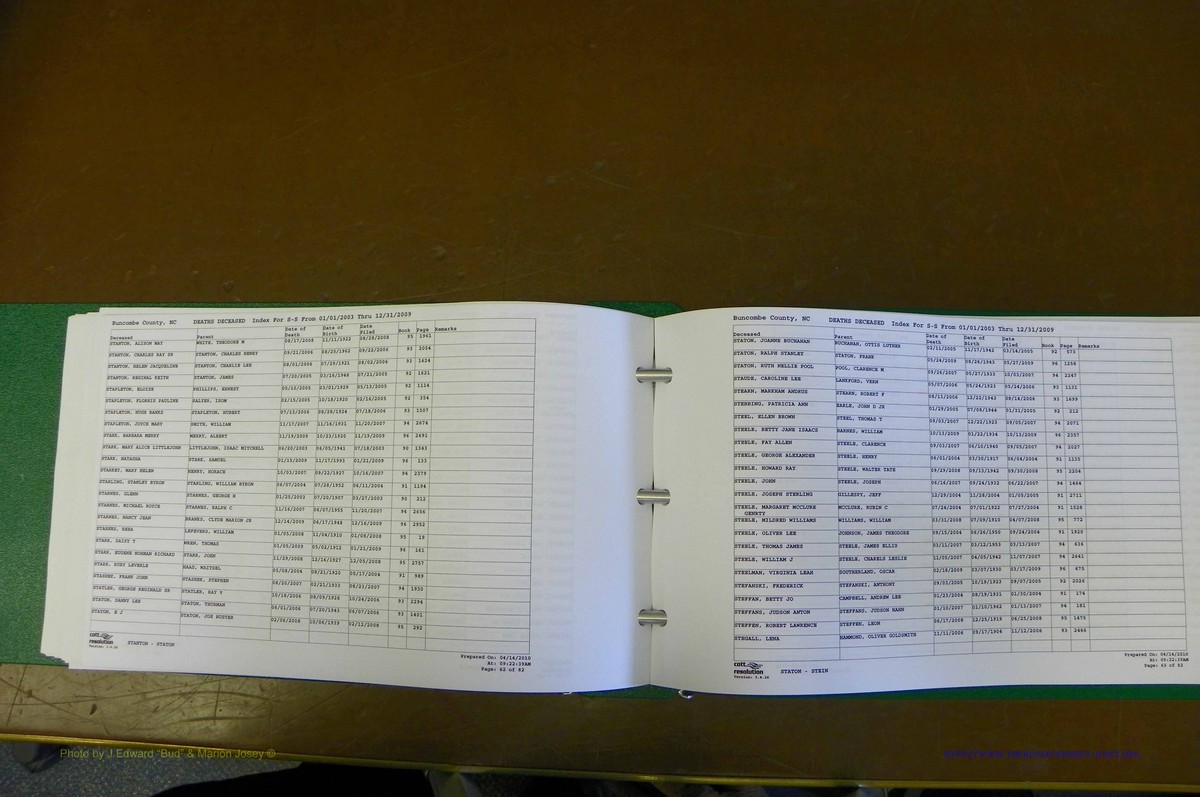 Buncombe County, NC DEATHS DECEASED Index For S-S From 01/01/2003 Thru 12/31/2009
Deceased Parent Date of Death Date of Birth Date Filed Book Page Remarks
STANTON, ALISON MAY WHITE, THEODORE M 08/17/2008 11/11/1922 08/28/2008 95 1961
STANTON, CHARLES RAY SR STANTON, CHARLES HENRY 09/21/2006 08/25/1962 09/22/2006 93 2004
STANTON, HELEN JACQUELINE STANTON, CHARLIE LEE 08/01/2006 07/29/1921 08/02/2006 93 1624
STANTON, REGINAL KEITH STANTON, JAMES 07/20/2005 03/16/1948 07/21/2005 92 1621
STAPLETON, ELOISE PHILLIPS, ERNEST 05/13/2005 03/01/1929 05/13/2005 92 1114
STAPLETON, FLORRIE PAULINE SALYER, ISOM 02/15/2005 10/18/1920 02/16/2005 92 354
STAPLETON, HUGH BANKS STAPLETON, HUBERT 07/13/2006 08/28/1924 07/18/2006 93 1507
STAPLETON, JOYCE MARY SMITH, WILLIAM 11/17/2007 11/16/1931 11/20/2007 94 2674
STARK, BARBARA MERRY MERRY, ALBERT 11/19/2009 10/23/1920 11/19/2009 96 2691
STARK, MARY ALICE LITTLEJOHN LITTLEJOHN, ISAAC MITCHELL 06/20/2003 06/05/1941 07/18/2003 90 1343
STARK, NATASHA STARK, SAMUEL 01/15/2009 11/17/1993 01/21/2009 96 133
STARKEY, MARY HELEN HENRY, HORACE 10/03/2007 09/22/1927 10/16/2007 94 2379
STARLING, STANLEY BYRON STARLING, WILLIAM BYRON 06/07/2004 07/28/1952 06/11/2004 91 1194
STARNES, GLENN STARNES, GEORGE R 01/25/2003 07/20/1907 03/27/2003 90 212
STARNES, MICHAEL ROYCE STARNES, RALPH C 11/16/2007 06/07/1955 11/20/2007 94 2656
STARNES, NANCY JEAN BRANKS, CLYDE MARION JR 12/14/2009 06/17/1948 12/16/2009 96 2952
STARNES, RENA LEFEVERS, WILLIAM 01/05/2008 11/04/1910 01/08/2008 95 19
STARR, DAISY T WREN, THOMAS 01/05/2009 05/02/1912 01/21/2009 96 161
STARR, EUGENE NORMAN RICHARD STARR, JOHN 11/29/2008 12/16/1927 12/05/2008 95 2757
STARR, RUBY LEVERLE HAAS, WAITSEL 05/08/2004 08/21/1920 05/17/2004 91 989
STASHEK, FRANK JOHN STASHEK, STEPHEN 08/20/2007 02/21/1933 08/23/2007 94 1930
STATLER, GEORGE REGINALD SR STATLER, RAY V 10/18/2006 08/09/1926 10/24/2006 93 2294
STATON, DANNY LEE STATON, THURMAN 06/01/2006 07/20/1943 06/07/2006 93 1401
STATON, E J STATON, JOE BUSTER 02/08/2008 10/06/1939 02/12/2008 95 292
cott resolution
Version: 1.4.26
STANTON - STATON
Prepared On: 04/14/2010
At: 09:22:39AM
Page: 62 of 82
Buncombe County, NC DEATHS DECEASED Index For S-S From 01/01/2003 Thru 12/31/2009
Deceased Parent Date of Death Date of Birth Date Filed Book Page Remarks
STATON, JOANNE BUCHANAN BUCHANAN, OTTIS LUTHER 02/11/2005 11/17/1942 03/14/2005 92 573
STATON, RALPH STANLEY STATON, FRANK 05/24/2009 08/26/1943 05/27/2009 96 1258
STATON, RUTH NELLIE POOL POOL, CLARENCE M 09/26/2007 05/27/1933 10/03/2007 94 2247
STAUDE, CAROLINE LEE LANKFORD, VERN 05/07/2006 05/24/1923 05/24/2006 93 1131
STEARN, MARKHAM ANDRUS STEARN, ROBERT F 08/11/2006 12/22/1943 08/16/2006 93 1699
STEBBING, PATRICIA ANN EARLE, JOHN D JR 01/29/2005 07/08/1944 01/31/2005 92 212
STEEL, ELLEN BROWN STEEL, THOMAS T 09/03/2007 12/22/1923 09/05/2007 94 2071
STEELE, BETTY JANE ISAACS BARNES, WILLIAM 10/11/2009 01/22/1934 10/13/2009 96 2357
STEELE, FAY ALLEN STEELE, CLARENCE 09/03/2007 06/10/1940 09/05/2007 94 2027
STEELE, GEORGE ALEXANDER STEELE, HENRY 06/01/2004 03/30/1917 06/04/2004 91 1133
STEELE, HOWARD RAY STEELE, WALTER TATE 09/29/2008 09/13/1942 09/30/2008 95 2204
STEELE, JOHN STEELE, JOSEPH 06/16/2007 09/24/1932 06/22/2007 94 1464
STEELE, JOSEPH STERLING GILLESPY, JEFF 12/29/2004 11/18/2004 01/05/2005 91 2711
STEELE, MARGARET MCCLURE GENRTY MCCLURE, RUBIN C 07/24/2004 07/01/1922 07/27/2004 91 1528
STEELE, MILDRED WILLIAMS WILLIAMS, WILLIAM 03/31/2008 07/09/1910 04/07/2008 95 772
STEELE, OLIVER LEE JOHNSON, JAMES THEODORE 09/15/2004 06/26/1950 09/24/2004 91 1920
STEELE, THOMAS JAMES STEELE, JAMES ELLIS 03/11/2007 03/12/1953 03/13/2007 94 636
STEELE, WILLIAM J STEELE, CHARELS LESLIE 11/05/2007 04/05/1942 11/07/2007 94 2641
STEELMAN, VIRGINIA LEAH SOUTHERLAND, OSCAR 02/18/2009 03/07/1930 03/17/2009 96 675
STEFANSKI, FREDERICK STEFANSKI, ANTHONY 09/03/2005 10/19/1923 09/07/2005 92 2026
STEFFAN, BETTY JO CAMPBELL, ANDREW LEE 01/23/2004 08/19/1931 01/30/2004 91 174
STEFFANS, JUDSON ANTON STEFFANS, JUDSON HANN 01/10/2007 01/10/1942 01/13/2007 94 181
STEFFEN, ROBERT LAWRENCE STEFFEN, LEON 06/17/2008 12/25/1919 06/25/2008 95 1475
STEGALL, LENA HAMMOND, OLIVER GOLDSMITH 11/11/2006 09/17/1906 11/12/2006 93 2466
cott resolution
Version: 1.4.26
STATON - STEIN
Prepared On: 04/14/2010
At: 09:22:39AM
Page: 63 of 82
Photo by J.Edward "Bud" & Marion Josey ©